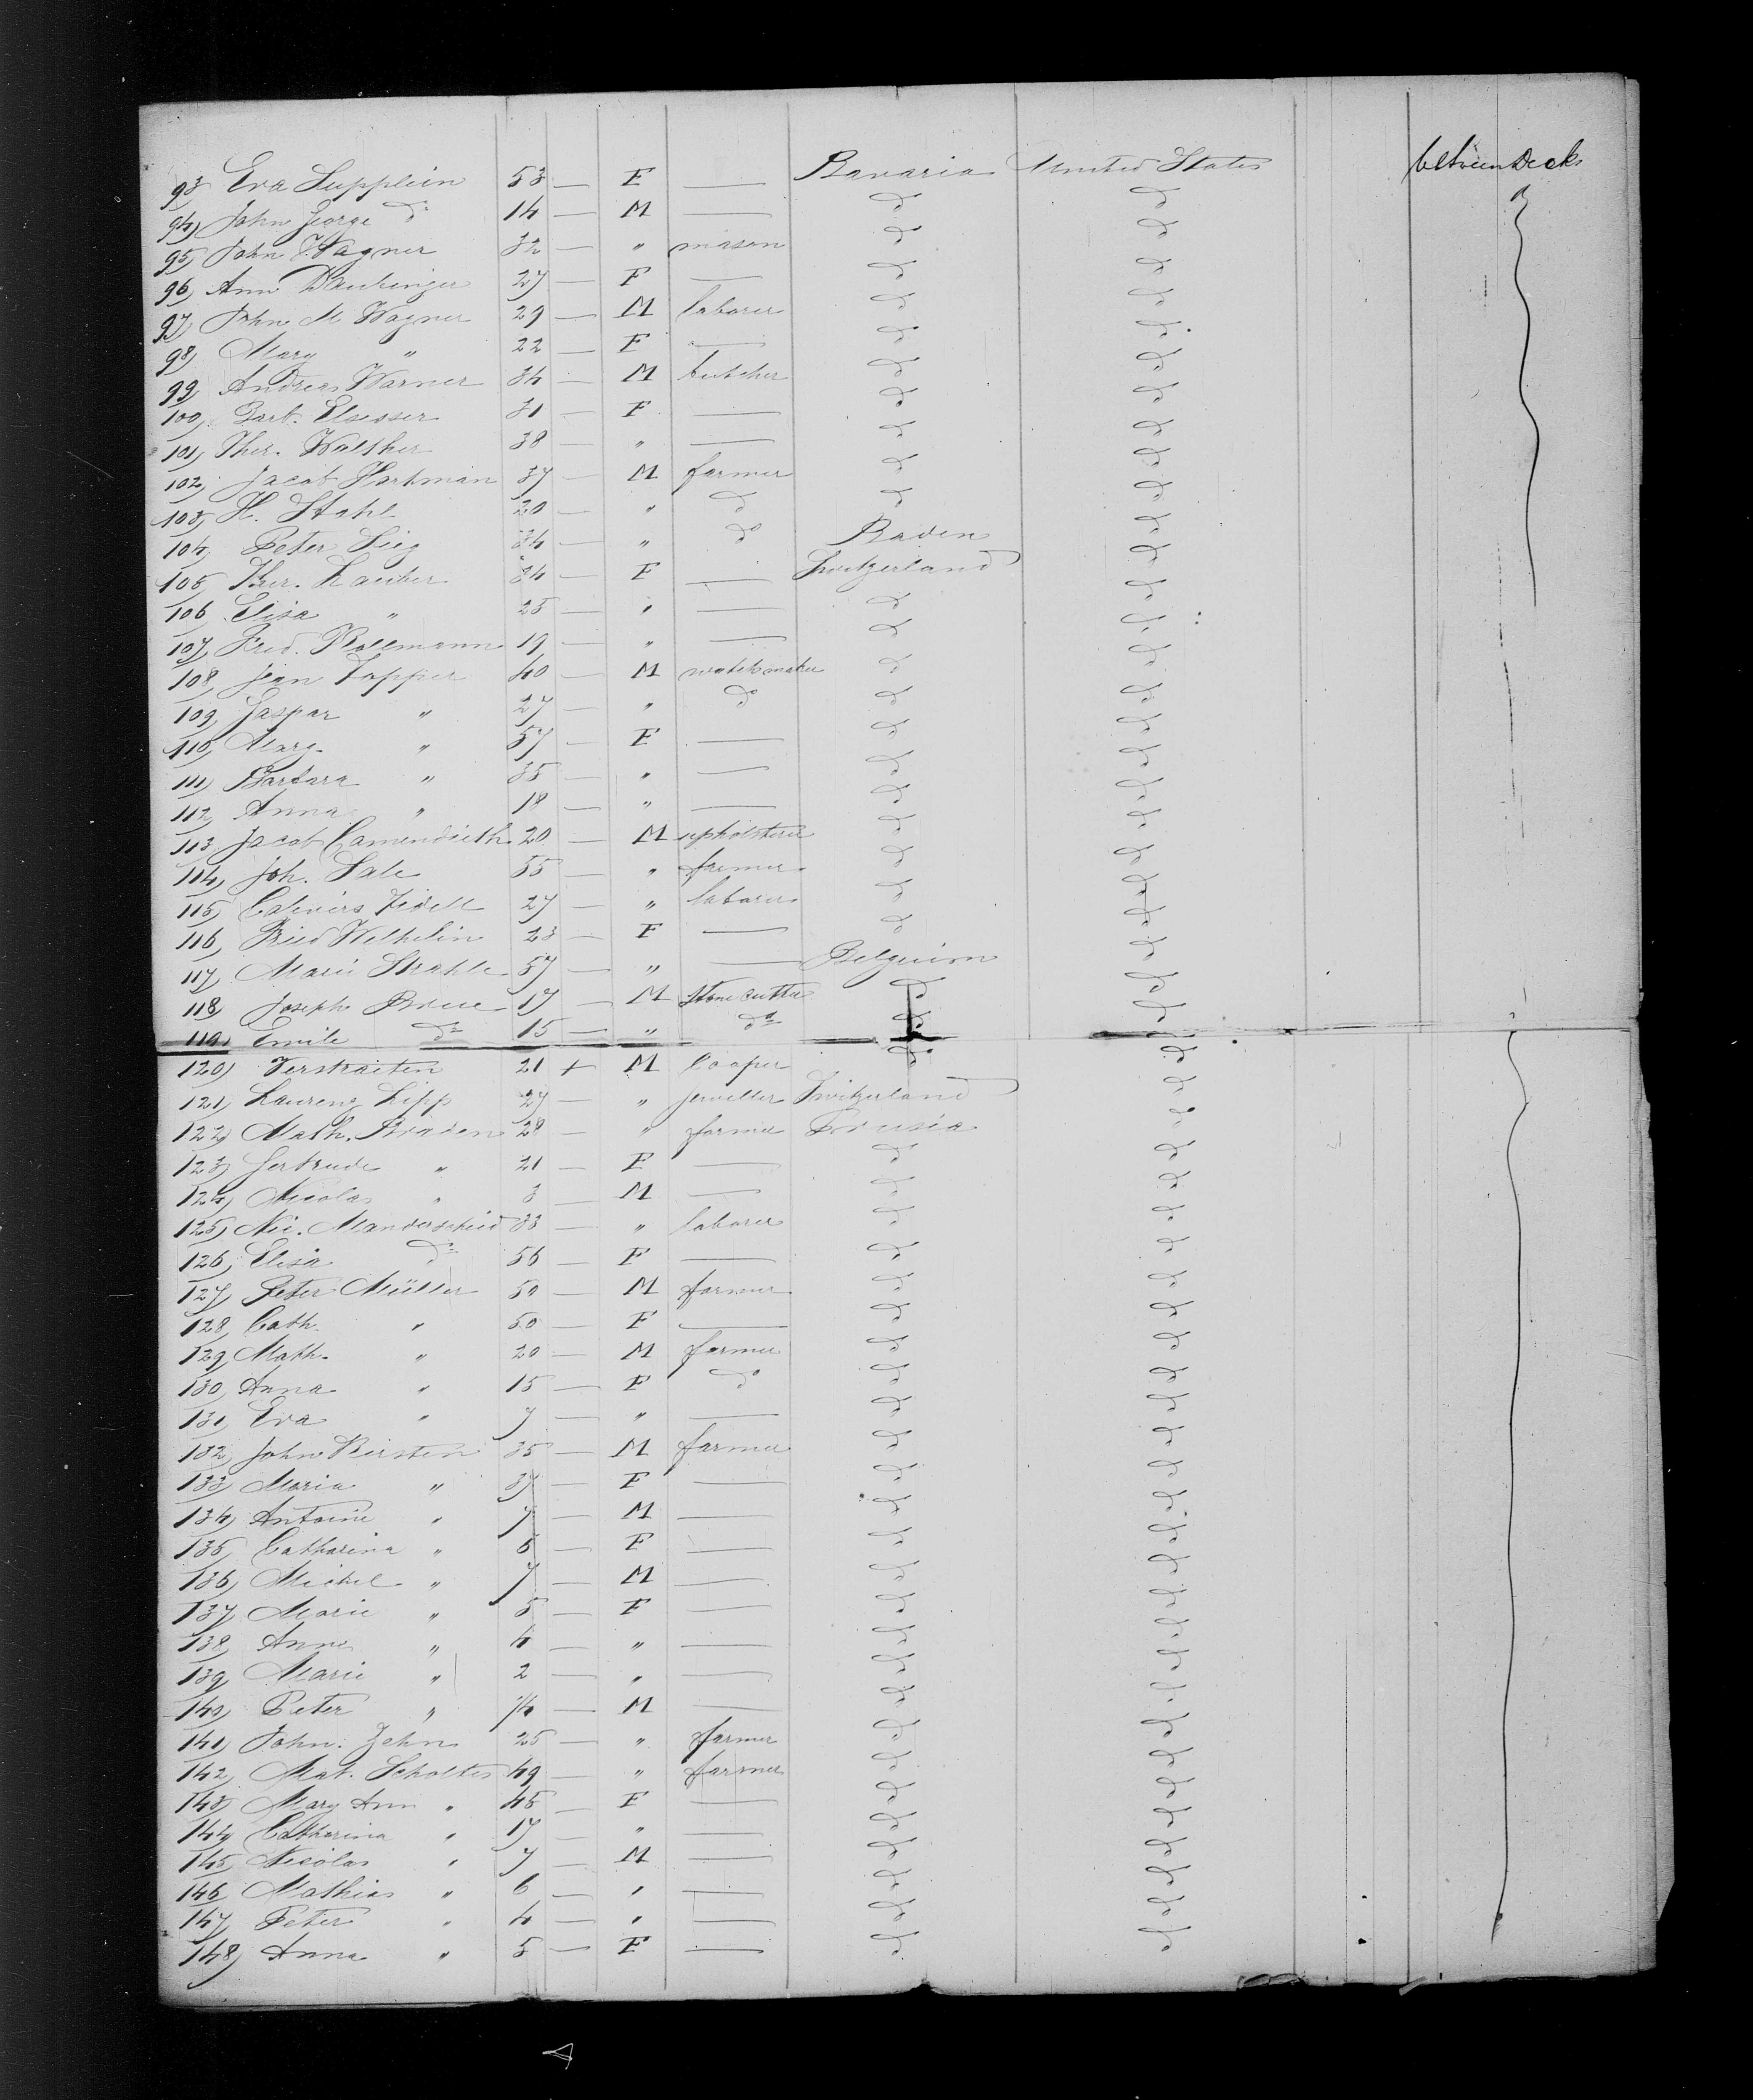 93) Eva Supplein 53 — F — Bavaria United States between Decks
94) John George do 14 — M — do do
95) John Wagner 32 — " mason do do
96) Ann 27 — F — do do
97) John M Wagner 29 — M laborer do do
98) Mary " 22 — F — do do
99) Andreas Warner 34 — M butcher do do
100) Barb. Elsesser 31 — F — do do
101) Ther. Walther 38 — " — do do
102) Jacob Hartman 37 — M farmer do do
103) H. Stahl 20 — " do do do
104) Peter Sieg 34 — " do Baden do
105) Ther. Lauber 34 — F — Switzerland do
106 Elisa " 25 — " — do do
107) Fred. 19 — " — do do
108) Jean 40 — M watchmaker do do
109) Gaspar " 27 — " do do do
110) Marg. " 57 — F — do do
111) Barbara " 35 — " — do do
112) Anna " 18 — " — do do
113 Jacob 20 — M upholsterer do do
114) Joh. Sale 55 — " farmer do do
115) 27 — " laborer do do
116) Fried 23 — F — do do
117) Marie Strahle 57 — " — Belgium do
118) Joseph 17 — M Stone cutter do do
119) Emile do 15 — " do do do
120) Verstraiten 21 + M Cooper do do
121) Laurenz Lipp 27 — " Jeweller Switzerland do
122) Math. Braden 28 — " farmer Prusia do
123) Gertrude " 21 — F — do do
124) Nicolas " 3 — M — do do
125) Nic. Manderscheid 33 — " laborer do do
126) Elisa do 56 — F — do do
127) Peter Müller 50 — M farmer do do
128) Cath. " 50 — F — do do
129) Math. " 20 — M farmer do do
130) Anna " 15 — F do do do
131) Eva " 7 — " — do do
132) John Kirsten 35 — M farmer do do
133) Maria " 37 — F — do do
134) Antoine " 7 — M — do do
135) Catharina " 6 — F — do do
136) Michel " 7 — M — do do
137) Marie " 5 — F — do do
138) Anna " 4 — " — do do
139) Marie " 2 — " — do do
140) Peter " — M — do do
141) John. Zehn 25 — " farmer do do
142) Mat. Scholtes 49 — " farmer do do
143) Mary Ann " 45 — F — do do
144) Catharina " 17 — " — do do
145) Nicolas " 7 — M — do do
146) Mathias " 6 — " — do do
147) Peter " 4 — " — do do
148) Anna " 5 — F — do do